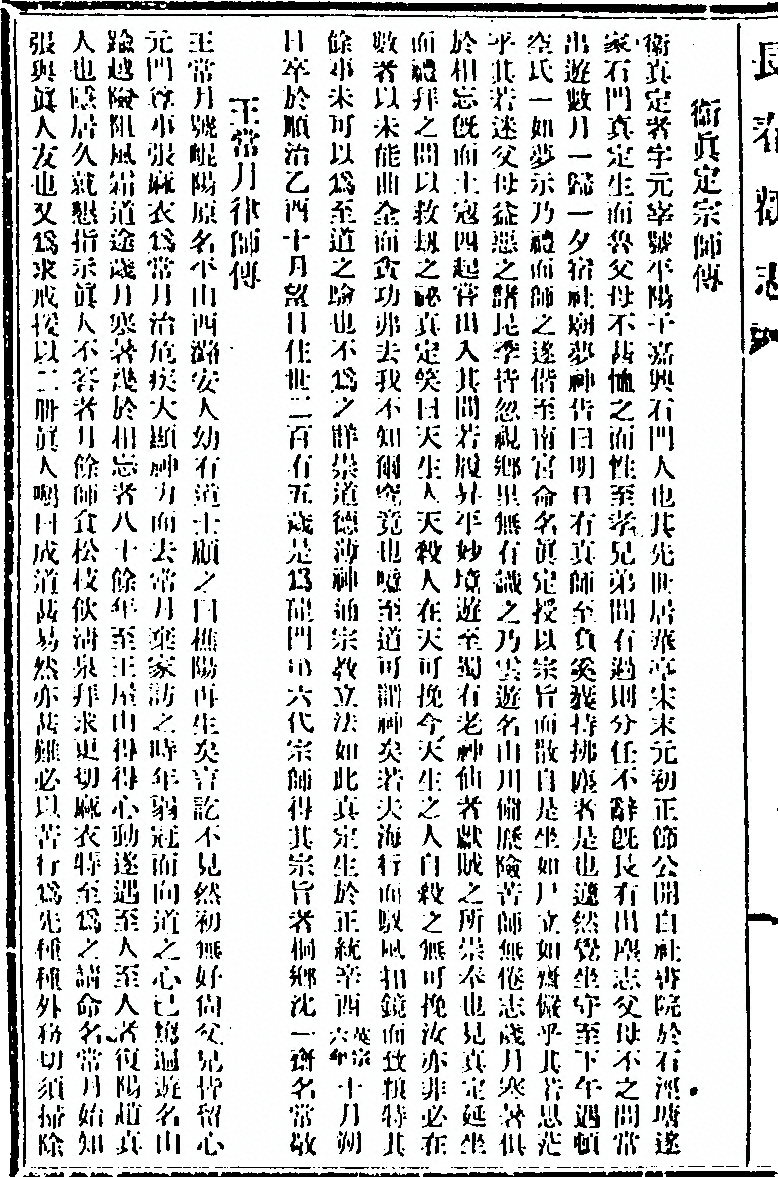 長春道志
衛真定宗師傳
衛真定者字元宰號平陽子嘉興石門人也其先世居華亭宋末元初正節公開白社書院於石涇塘遂
家石門真定生而魯父母不甚恤之而性至孝兄弟間有過則分任不辭既長有出塵志父母不之問常
出遊數月一歸一夕宿社廟夢神告曰明日有真師至負笈獲持拂塵者是也遽然覺坐守至下午遇頓
空氏一如夢示乃禮而師之遂偕至南宮命名真定授以宗旨而散自是坐如尸立如齋儼乎其若思茫
乎其若迷父母益惡之諸昆季皆忽視鄉里無有識之乃雲遊名山川備歷險苦師無倦志歲月寒暑俱
於相忘既而土寇四起嘗出入其間若履昇平妙境遊至蜀有老神仙者獻賊之所崇奉也見真定延坐
而禮拜之問以救劫之祕真定笑曰天生人天殺人在天可挽今天生之人自殺之無可挽汝亦非必在
數者以未能曲全而貪功弗去我不知爾究竟也噫至道可謂神矣若夫海行而馭風扣鏡而致積特其
餘事未可以為至道之驗也不為之詳崇道德薄神通宗教立法如此真定生於正統辛酉英宗六年十月朔
日卒於順治乙酉十月望日住世二百有五歲是為龍門第六代宗師得其宗旨者桐鄉沈一齋名常敬
王常月律師傳
王常月號崐陽原名平山西潞安人幼有道士顧之曰樵陽再生矣言訖不見然初無好尚父兄皆留心
元門尊事張麻衣為常月治危疾大顯神力而去常月棄家訪之時年弱冠而向道之心已堅遍遊名山
踰越險阻風霜道途歲月寒暑幾於相忘者八十餘年至王屋山得得心動遂遇至人至人者復陽趙真
人也隱居久就懇指示眞人不答者月餘師食松枝飲清泉拜求更切麻衣特至為之請命名常月始知
張與眞人友也又為求戒授以二冊眞人囑曰成道甚易然亦甚難必以苦行為先種種外務切須掃除